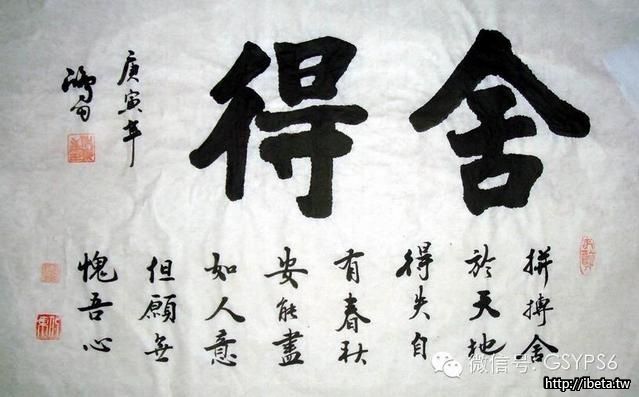 舍得
庚寅年
拼搏舍
於天地
得失自
有春秋
安能盡
如人意
但願無
愧吾心
微信号: GSYPS6
http://ibeta.tw